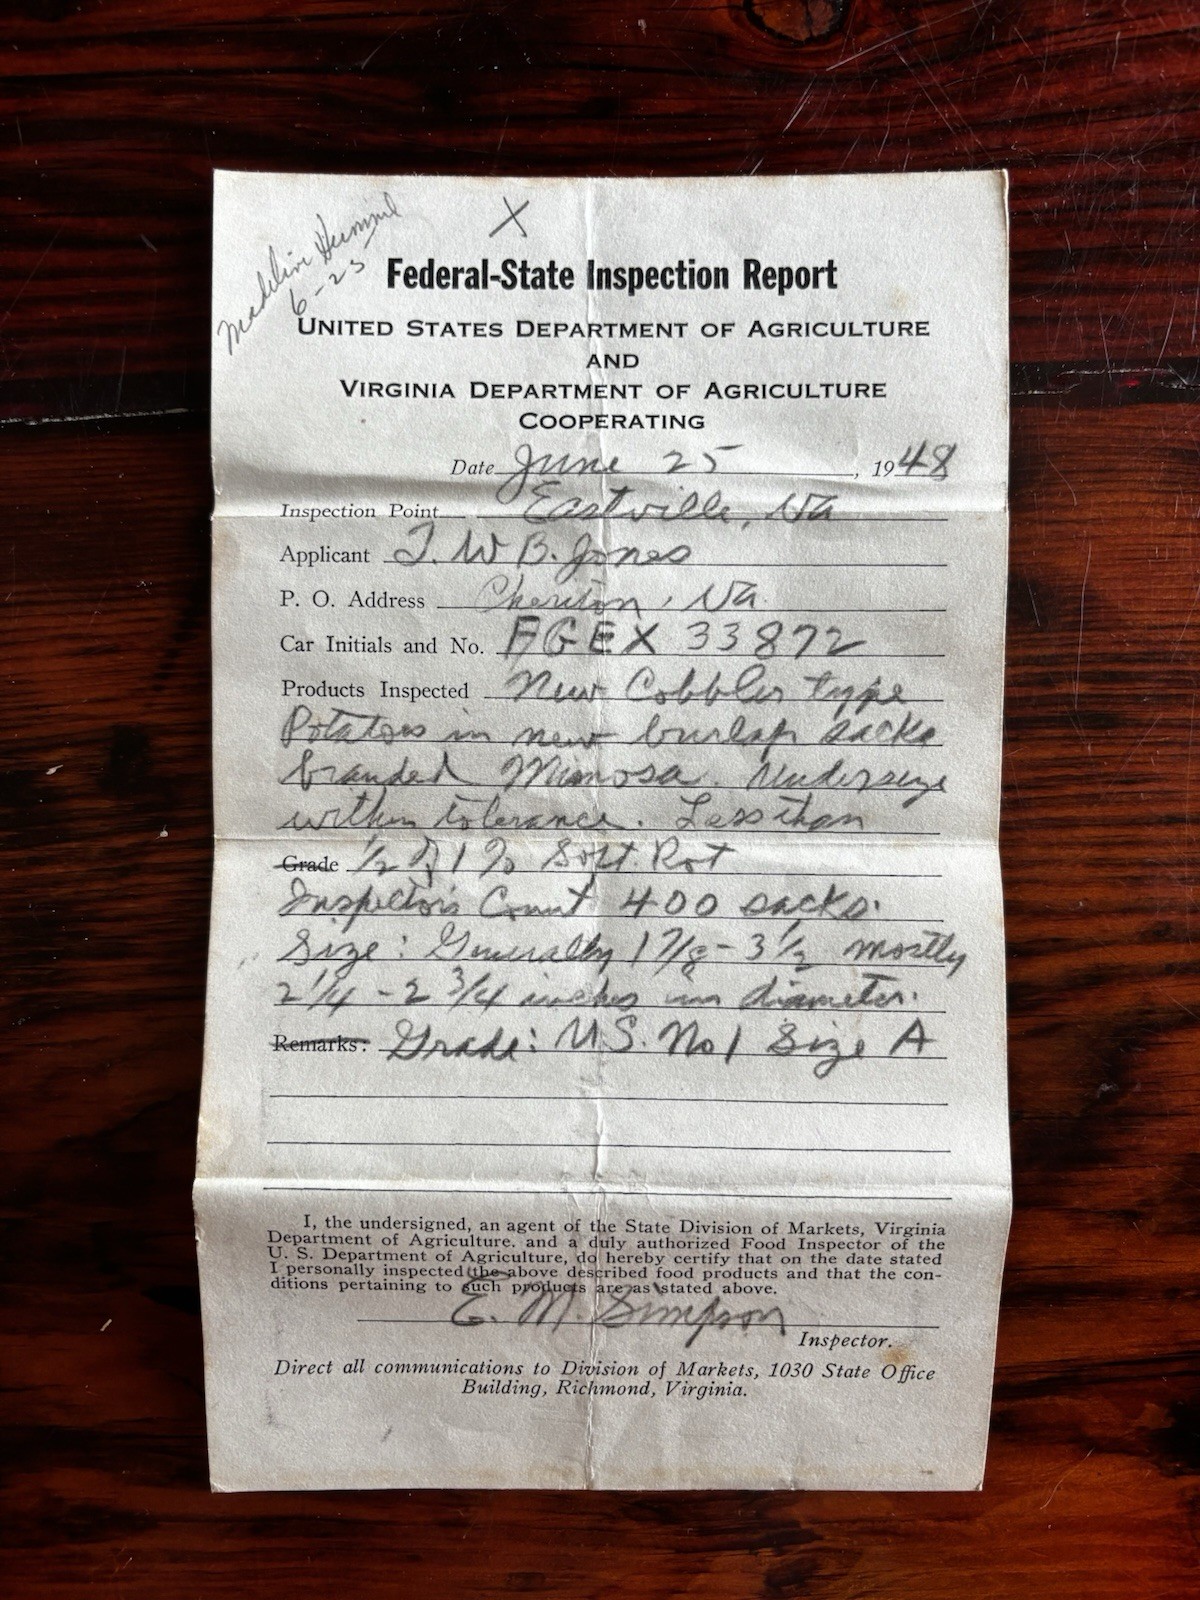 Madeline Hummel
6-25
X
Federal-State Inspection Report
UNITED STATES DEPARTMENT OF AGRICULTURE
AND
VIRGINIA DEPARTMENT OF AGRICULTURE
COOPERATING
Date June 25, 1948
Inspection Point Eastville, Va
Applicant T. W B. Jones
P. O. Address Cheriton, Va.
Car Initials and No. FGEX 33872
Products Inspected New Cobbler type
Potatoes in new burlap sacks
branded Mimosa. Undersize
within tolerance. Less than
Grade 1/2 of 1% Soft Rot
Inspector's Count 400 sacks.
Size: Generally 1 7/8 - 3 1/2 mostly
2 1/4 - 2 3/4 inches in diameter.
Remarks: Grade: U.S. No 1 Size A
I, the undersigned, an agent of the State Division of Markets, Virginia
Department of Agriculture, and a duly authorized Food Inspector of the
U. S. Department of Agriculture, do hereby certify that on the date stated
I personally inspected the above described food products and that the con-
ditions pertaining to such products are as stated above.
E. M. Simpson
Inspector.
Direct all communications to Division of Markets, 1030 State Office
Building, Richmond, Virginia.